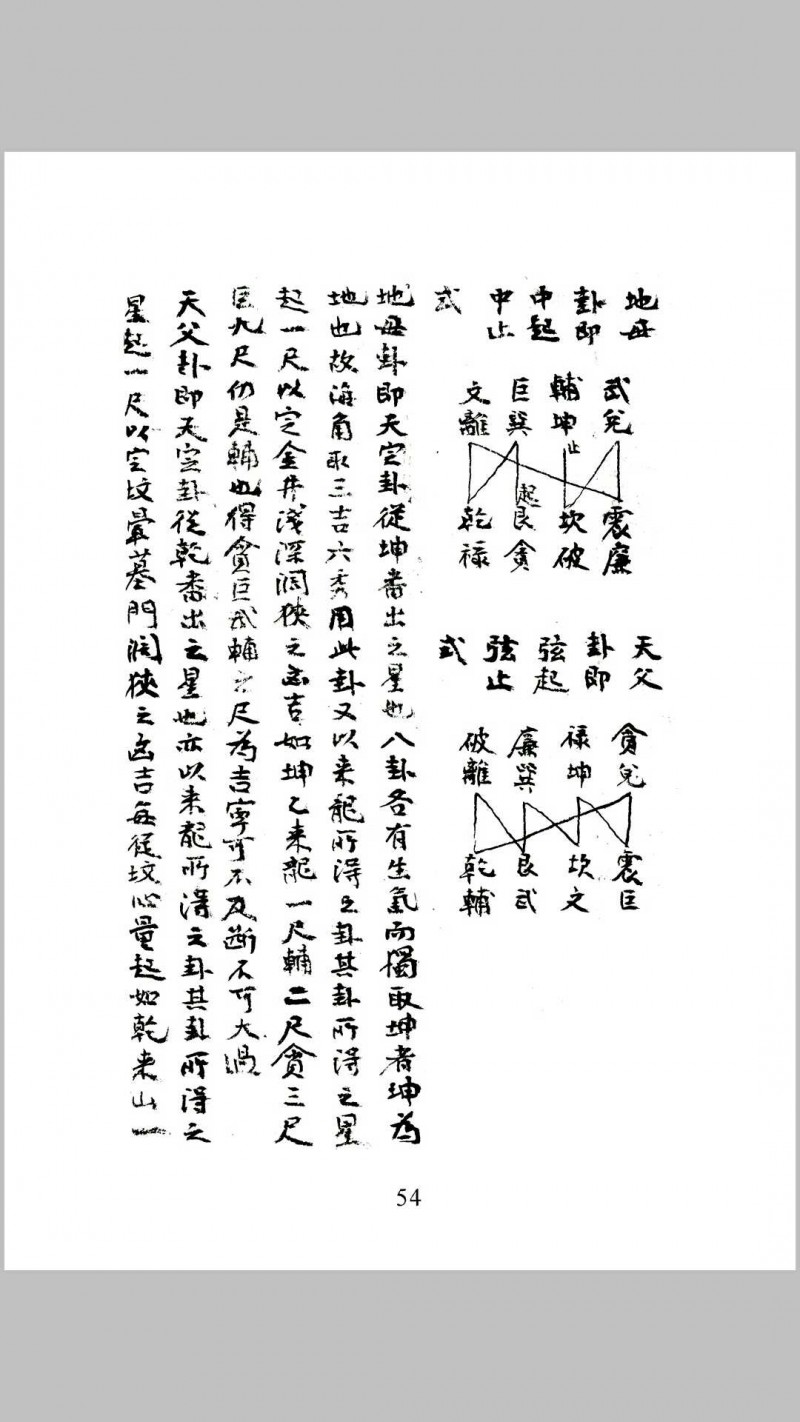 地母
卦即
中起
中止
式
武兌 震廉
輔坤 坎破
巨巽 艮貪
文離 乾祿
止
起
天父
卦即
弦起
弦止
式
貪兌 震巨
祿坤 坎文
廉巽 艮武
破離 乾輔
地母卦即天定卦從坤番出之星也八卦各有生氣而獨取坤者坤為
地也故海角取三吉六秀用此卦又以来龍所得之卦其卦所得之星
起一尺以定金井淺深闊狹之凶吉如坤乙来龍一尺輔二尺貪三尺
巨九尺仍是輔也得貪巨武輔之尺為吉寧可不及斷不可大過
天父卦即天定卦從乾番出之星也亦以来龍所得之卦其卦所得之
星起一尺以定坟暈墓門闊狹之凶吉每從坟心量起如乾来山一
54